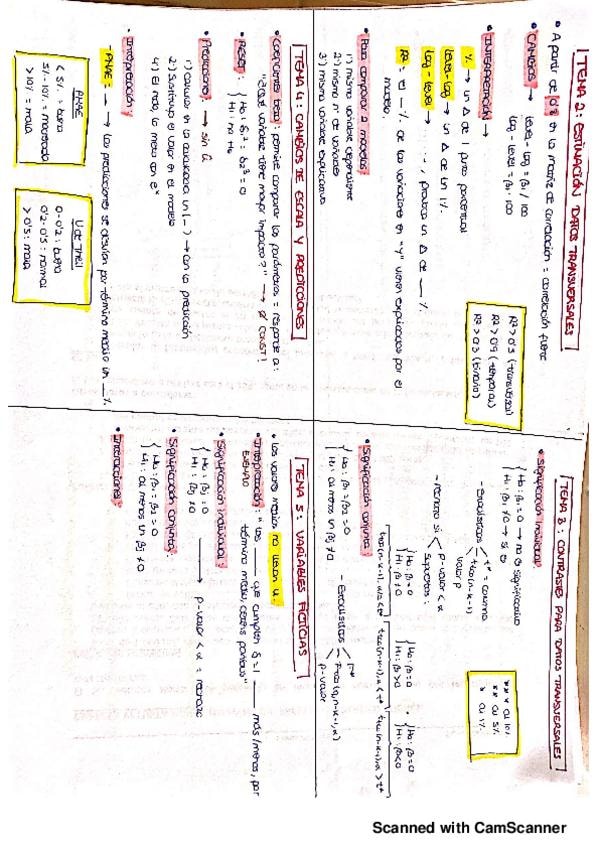 TEMA 2: ESTIMACIÓN DATOS TRANSVERSALES
• A partir de 0'8 en la matriz de correlación = correlación fuerte
• CAMBIOS → level - log = β1 / 100
log - level = β1 · 100
• INTERPRETACIÓN →
% → un Δ de 1 punto porcentual
level-log → un Δ de un 1%
log - level → ..., provoca un Δ de __ %.
R² = el __ % de las variaciones en "y" vienen explicadas por el
modelo.
R² > 0'5 (transversal)
R² > 0'9 (temporal)
R² > 0'3 (binaria)
• Para comparar 2 modelos:
1) misma variable dependiente
2) mismo nº de variables
3) misma variable explicativa
TEMA 4: CAMBIOS DE ESCALA Y PREDICCIONES
• Coeficientes beta: permite comparar los parámetros = responde a:
"¿Qué variable tiene mayor impacto?" → ∅ CONST!
• RESET: { H0: δ1² = δ2³ = 0
H1: no H0
• Predicciones: → sin û
1) Calcular en la calculadora un (-) → con la predicción
2) Sustituyo el valor en el modelo
• Interpretación:
- PMAE = __ → las predicciones se desvían por término medio un __ %
PMAE
< 5% = buena
5% - 10% = moderada
> 10% = mala
U de Theil
0 - 0'2 : buena
0'2 - 0'5 : normal
> 0'5 : mala
TEMA 3: CONTRASTES PARA DATOS TRANSVERSALES
• Significación individual:
{ H0: β1 = 0 → no es significativo
H1: β1 ≠ 0 → si es
*** al 1%
** al 5%
- Estadísticos
t* = columna
t α/2 (n-k-1)
valor p
- rechazo si
p-valor < α
supuestos:
{ H0: β = 0
H1: β ≠ 0
{ H0: β = 0
H1: β > 0
{ H0: β = 0
H1: β < 0
• Significación conjunta:
{ H0: β1 = β2 = 0
H1: al menos un βj ≠ 0
- Estadísticos
F*
p-valor
TEMA 5: VARIABLES FICTICIAS
• Los valores medios no llevan u.
• Interpretación: "Las __ que cumplen δ = 1 __ más/menos, por
EJEMPLO término medio, ceteris paribus"
• Significación individual:
{ H0: βj = 0
H1: βj ≠ 0 → p-valor < α = rechazo
• Significación conjunta:
{ H0: β1 = β2 = 0
H1: al menos un βj ≠ 0
• Interacciones:
Scanned with CamScanner